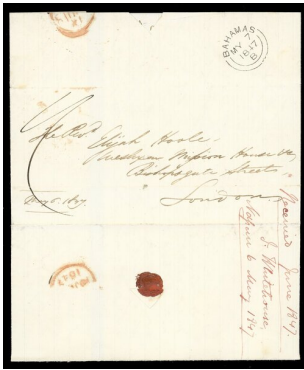 BAHAMAS
MY 7
1847
B
The Revd.
Elijah Hoole
Wesleyan Mission House
Bishopsgate Street
London
May 6. 1847
1847
Received June 1847.
J. Whitehouse,
Nassau 6 May 1847